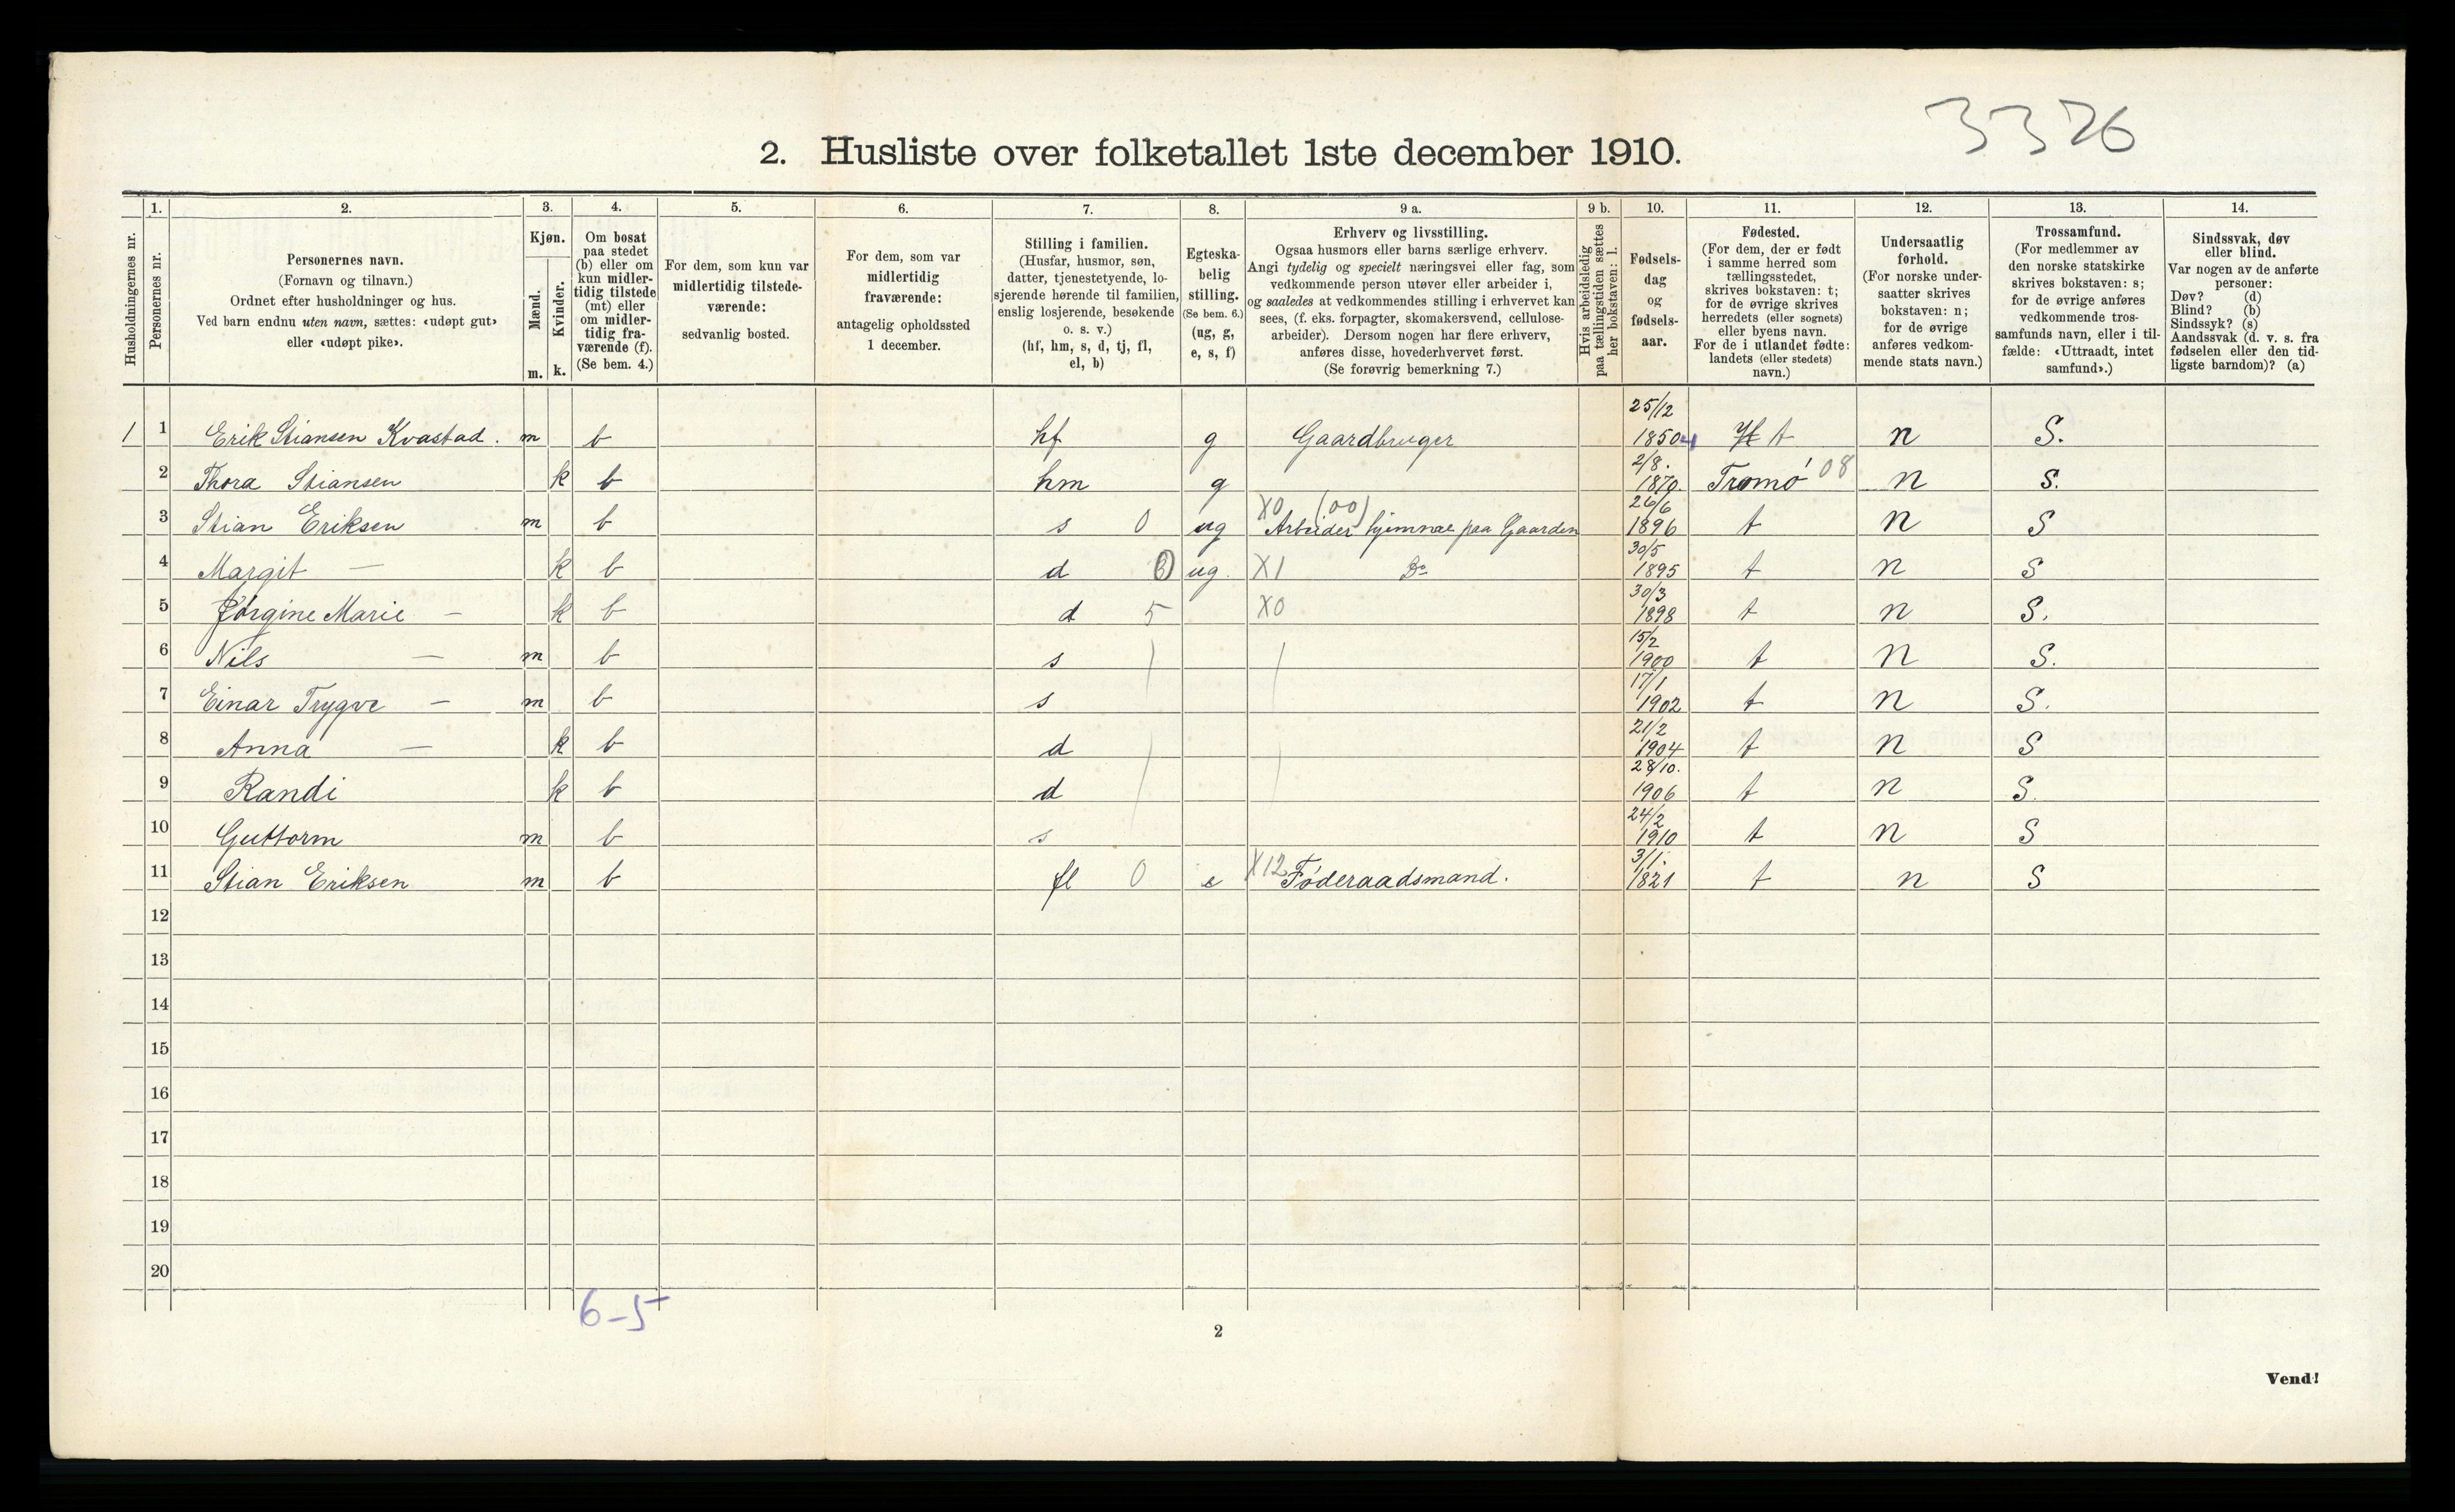 3326
2. Husliste over folketallet 1ste december 1910.
Husholdningernes nr.
1.
Personernes nr.
2.
Personernes navn.
(Fornavn og tilnavn.)
Ordnet efter husholdninger og hus.
Ved barn endnu uten navn, sættes: «udøpt gut»
eller «udøpt pike».
3.
Kjøn.
Mænd.
Kvinder.
m.
k.
4.
Om bosat
paa stedet
(b) eller om
kun midler-
tidig tilstede
(mt) eller
om midler-
tidig fra-
værende (f).
(Se bem. 4.)
5.
For dem, som kun var
midlertidig tilstede-
værende:
sedvanlig bosted.
6.
For dem, som var
midlertidig
fraværende:
antagelig opholdssted
1 december.
7.
Stilling i familien.
(Husfar, husmor, søn,
datter, tjenestetyende, lo-
sjerende hørende til familien,
enslig losjerende, besøkende
o. s. v.)
(hf, hm, s, d, tj, fl,
el, b)
8.
Egteska-
belig
stilling.
(Se bem. 6.)
(ug, g,
e, s, f)
9 a.
Erhverv og livsstilling.
Ogsaa husmors eller barns særlige erhverv.
Angi tydelig og specielt næringsvei eller fag, som
vedkommende person utøver eller arbeider i,
og saaledes at vedkommendes stilling i erhvervet kan
sees, (f. eks. forpagter, skomakersvend, cellulose-
arbeider). Dersom nogen har flere erhverv,
anføres disse, hovederhvervet først.
(Se forøvrig bemerkning 7.)
9 b.
Hvis arbeidsledig
paa tællingstiden sættes
her bokstaven: l.
10.
Fødsels-
dag
og
fødsels-
aar.
11.
Fødested.
(For dem, der er født
i samme herred som
tællingsstedet,
skrives bokstaven: t;
for de øvrige skrives
herredets (eller sognets)
eller byens navn.
For de i utlandet fødte:
landets (eller stedets)
navn.)
12.
Undersaatlig
forhold.
(For norske under-
saatter skrives
bokstaven: n;
for de øvrige
anføres vedkom-
mende stats navn.)
13.
Trossamfund.
(For medlemmer av
den norske statskirke
skrives bokstaven: s;
for de øvrige anføres
vedkommende tros-
samfunds navn, eller i til-
fælde: «Uttraadt, intet
samfund».)
14.
Sindssvak, døv
eller blind.
Var nogen av de anførte
personer:
Døv? (d)
Blind? (b)
Sindssyk? (s)
Aandssvak (d. v. s. fra
fødselen eller den tid-
ligste barndom)? (a)
1 1 Erik Stiansen Kvastad. m b hf g Gaardbruger 25/12 1850 t n S.
2 Thora Stiansen k b hm g 2/8. 1870. Tromø 08 n S.
3 Stian Eriksen m b s 0 ug X0 (00) Arbeider hjemme paa Gaarden 26/6 1896 t n S
4 Margit — k b d 0 ug. X1 Do 30/5 1895 t n S
5 Jørgine Marie — k b d 5 X0 30/3 1898 t n S.
6 Nils — m b s 15/2 1900 t n S.
7 Einar Trygve — m b s 17/1 1902 t n S.
8 Anna — k b d 21/2 1904 t n S
9 Randi k b d 28/10. 1906 t n S.
10 Guttorm m b s 24/2 1910 t n S
11 Stian Eriksen m b fl 0 e X12 Føderaadsmand. 3/1. 1821 t n S
12
13
14
15
16
17
18
19
20
6-5
2
Vend!